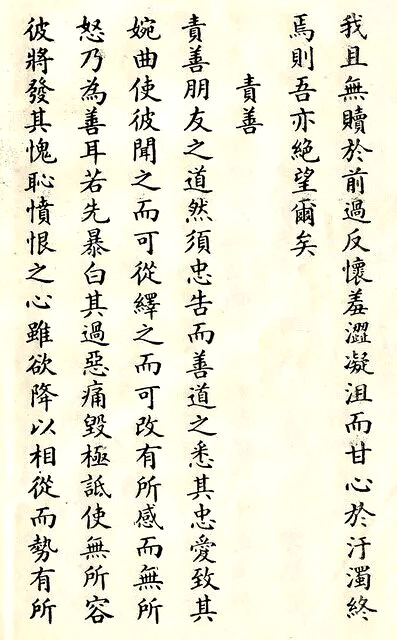 我且無贖於前過反懷羞澀凝沮而甘心於汙濁終
焉則吾亦絕望爾矣
責善
責善朋友之道然須忠告而善道之悉其忠愛致其
婉曲使彼聞之而可從繹之而可改有所感而無所
怒乃為善耳若先暴白其過惡痛毀極詆使無所容
彼將發其愧恥憤恨之心雖欲降以相從而勢有所